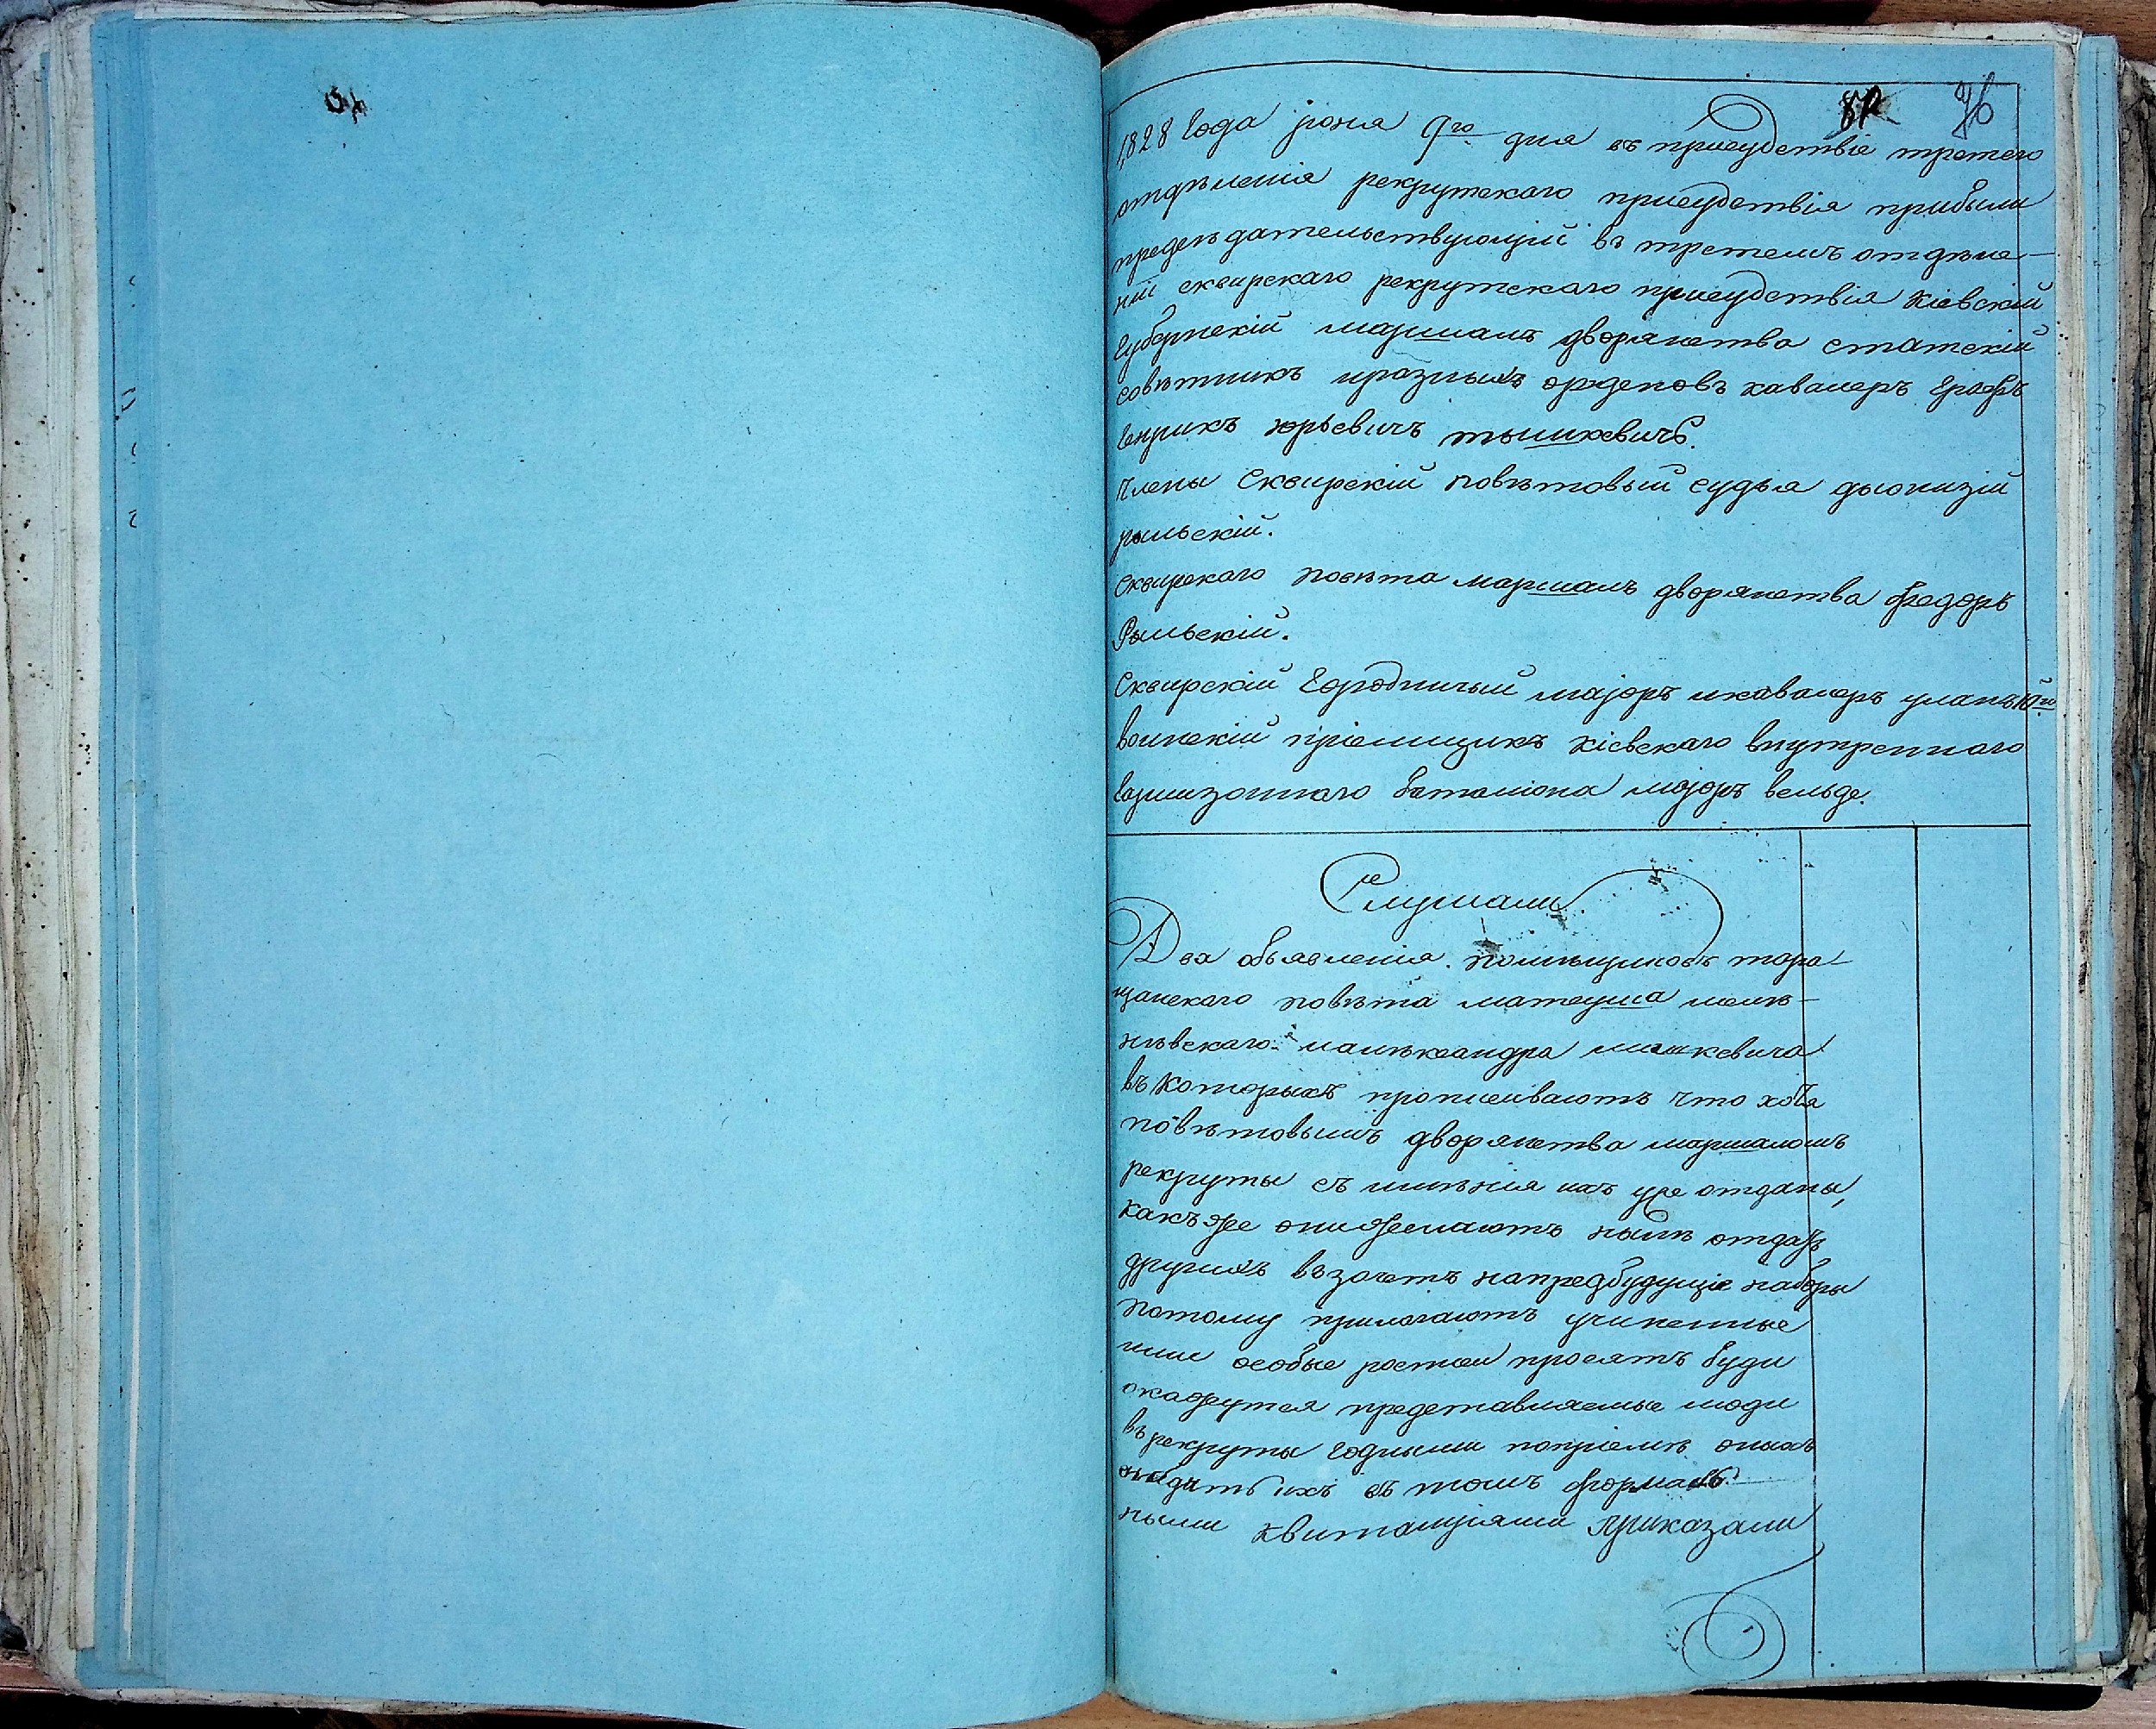 82 76
1828 Года јюня 9го дня въ присудствіе третего
отдѣленія рекрутскаго присудствія прибыли
предсѣдательствующій въ третемъ отдѣле-
ніи сквирскаго рекрутскаго присудствія Кіевскій
Губернскій маршалъ дворянства статскій
совѣтникъ иразныхъ орденовъ кавалеръ Графъ
Генрикъ юрьевичъ тышкевичъ.
Члены Сквирскій повѣтовый судья дыонизій
рыльскій.
Сквирскаго повѣта маршалъ дворянства Федоръ
Рыльскій.
Сквирскій Городничый маіоръ икавалеръ уланъ 10го
воинскій пріемщикъ кіевскаго внутренного
Гарнизонного баталіона маіоръ вельде.
Слушали
Два объявленія помѣщиковъ тара-
щанскаго повѣта матеуша
иалѣксандра
въ которыхъ прописываютъ что хотя
повѣтовымъ дворянства маршаломъ
рекруты съ имѣнія ихъ уже отданы,
какъже онижелаютъ нынѣ отдать
другихъ въ зачетъ напредбудущіе наборы
потому прилагаютъ учиненные
ими особые росписи просятъ буди
окажутся представляемые люди
въ рекруты годными попріемѣ оныхъ
выдать ихъ въ томъ формаль-
ными квитанціями Приказали